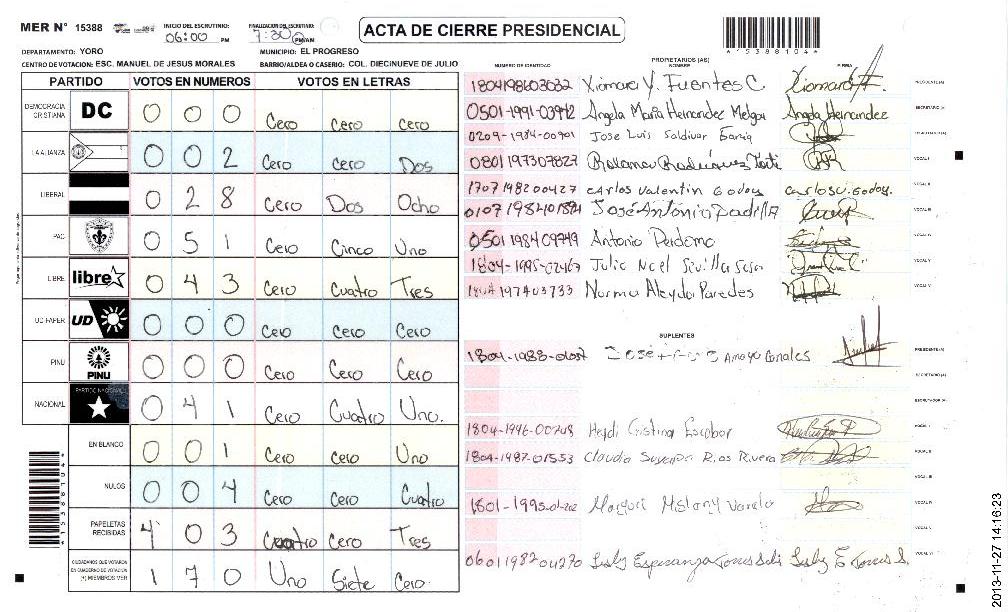 MER N° 15388
INICIO DEL ESCRUTINIO: 06:00 PM
FINALIZACION DEL ESCRUTINIO: 7:30 PM/AM
ACTA DE CIERRE PRESIDENCIAL
15388104
DEPARTAMENTO: YORO
MUNICIPIO: EL PROGRESO
CENTRO DE VOTACION: ESC. MANUEL DE JESUS MORALES
BARRIO/ALDEA O CASERIO: COL. DIECINUEVE DE JULIO
PARTIDO VOTOS EN NUMEROS VOTOS EN LETRAS
DEMOCRACIA CRISTIANA DC 0 0 0 Cero cero cero
LA ALIANZA 0 0 2 Cero cero Dos
LIBERAL 0 2 8 Cero Dos Ocho
PAC 0 5 1 Cero Cinco Uno
LIBRE libre 0 4 3 Cero Cuatro Tres
UD-FAPER UD 0 0 0 Cero Cero Cero
PINU PINU 0 0 0 Cero Cero Cero
NACIONAL PARTIDO NACIONAL 0 4 1 Cero Cuatro Uno.
EN BLANCO 0 0 1 Cero Cero Uno
NULOS 0 0 4 Cero Cero Cuatro
PAPELETAS RECIBIDAS 4 0 3 Cuatro Cero Tres
CIUDADANOS QUE VOTARON EN CUADERNO DE VOTACION (+) MIEMBROS MER 1 7 0 Uno Siete Cero
15388104
PROPIETARIOS (AS)
NUMERO DE IDENTIDAD NOMBRE FIRMA
1804198603032 Xiomara Y. Fuentes C Xiomara F. PRESIDENTE (A)
0501-1991-03942 Angela Maria Hernandez Melgar Angela Hernandez SECRETARIO (A)
0209-1984-00901 Jose Luis Saldivar Garcia
0801197307827 Rodriguez VOCAL I
1707198200427 carlos Valentin Godoy carlos V. Godoy.
0107198401894 José Antonio Padilla
0501198409749 Antonio Perdomo
1804-1995-02467 Julio Noel Sevilla Sosa VOCAL V
1804197403733 Norma Aleyda Paredes
SUPLENTES
1804-1988- José Amaya Canales PRESIDENTE (A)
SECRETARIO (A)
ESCRUTADOR (A)
1804-1996-00728 Heydi Cristina Escobar VOCAL I
1804-1987-01553 Claudia Rios Rivera VOCAL II
VOCAL III
1801-1995- Margori Mistany Varela VOCAL IV
VOCAL V
0601198204270 Lesly Esperanza Torres Lesly E Torres S. VOCAL VI
2013-11-27 14:16:23